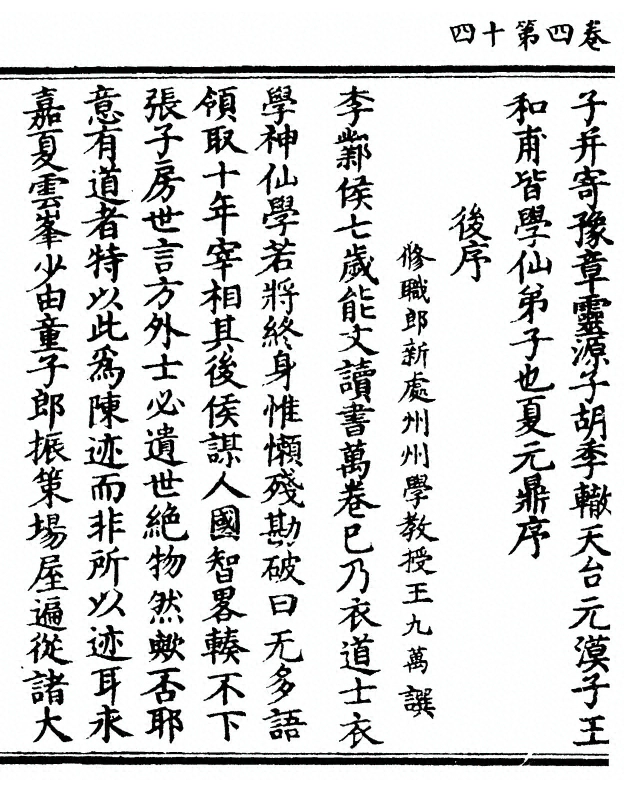 卷四第十四
子并寄豫章靈源子胡季轍天台元漠子王
和甫皆學仙弟子也夏元鼎序
後序
修職郎新處州州學教授王九萬譔
李鄴侯七歲能文讀書萬卷已乃衣道士衣
學神仙學若將終身惟懶殘勘破曰无多語
領取十年宰相其後侯謀人國智畧輳不下
張子房世言方外士必遺世絶物然歟否耶
意有道者特以此爲陳迹而非所以迹耳永
嘉夏雲峯少由童子郎振策場屋遍從諸大